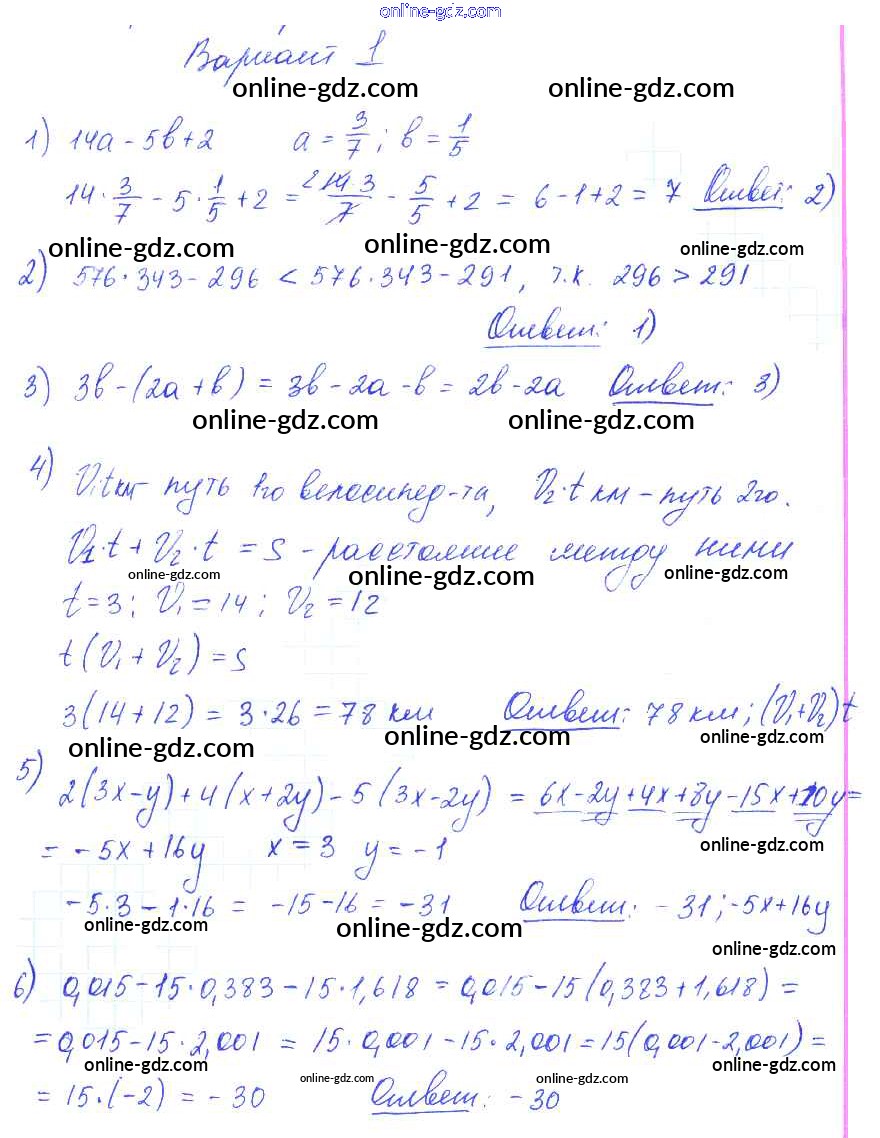 online-gdz.com
Вариант 1
online-gdz.com online-gdz.com
1) 14a - 5b + 2 a = 3/7 ; b = 1/5
14 · 3/7 - 5 · 1/5 + 2 = 2 14·3/7 - 5/5 + 2 = 6 - 1 + 2 = 7 Ответ: 2)
online-gdz.com online-gdz.com online-gdz.com
2) 576 · 343 - 296 < 576 · 343 - 291, т.к. 296 > 291
Ответ: 1)
3) 3b - (2a + b) = 3b - 2a - b = 2b - 2a Ответ: 3)
online-gdz.com online-gdz.com
4) V₁t км путь 1го велосипед-та, V₂·t км - путь 2го.
V₁·t + V₂·t = S - расстояние между ними
online-gdz.com online-gdz.com online-gdz.com
t = 3; V₁ = 14; V₂ = 12
t(V₁ + V₂) = S
3(14 + 12) = 3 · 26 = 78 км Ответ: 78 км; (V₁+V₂)t
online-gdz.com online-gdz.com online-gdz.com
5) 2(3x - y) + 4(x + 2y) - 5(3x - 2y) = 6x - 2y + 4x + 8y - 15x + 10y =
= -5x + 16y x = 3 y = -1
online-gdz.com
-5·3 - 1·16 = -15 - 16 = -31 Ответ: -31; -5x + 16y
online-gdz.com online-gdz.com online-gdz.com
6) 0,015 - 15·0,383 - 15·1,618 = 0,015 - 15(0,383 + 1,618) =
= 0,015 - 15·2,001 = 15·0,001 - 15·2,001 = 15(0,001 - 2,001) =
online-gdz.com online-gdz.com online-gdz.com online-gdz.com
= 15·(-2) = -30 Ответ: -30